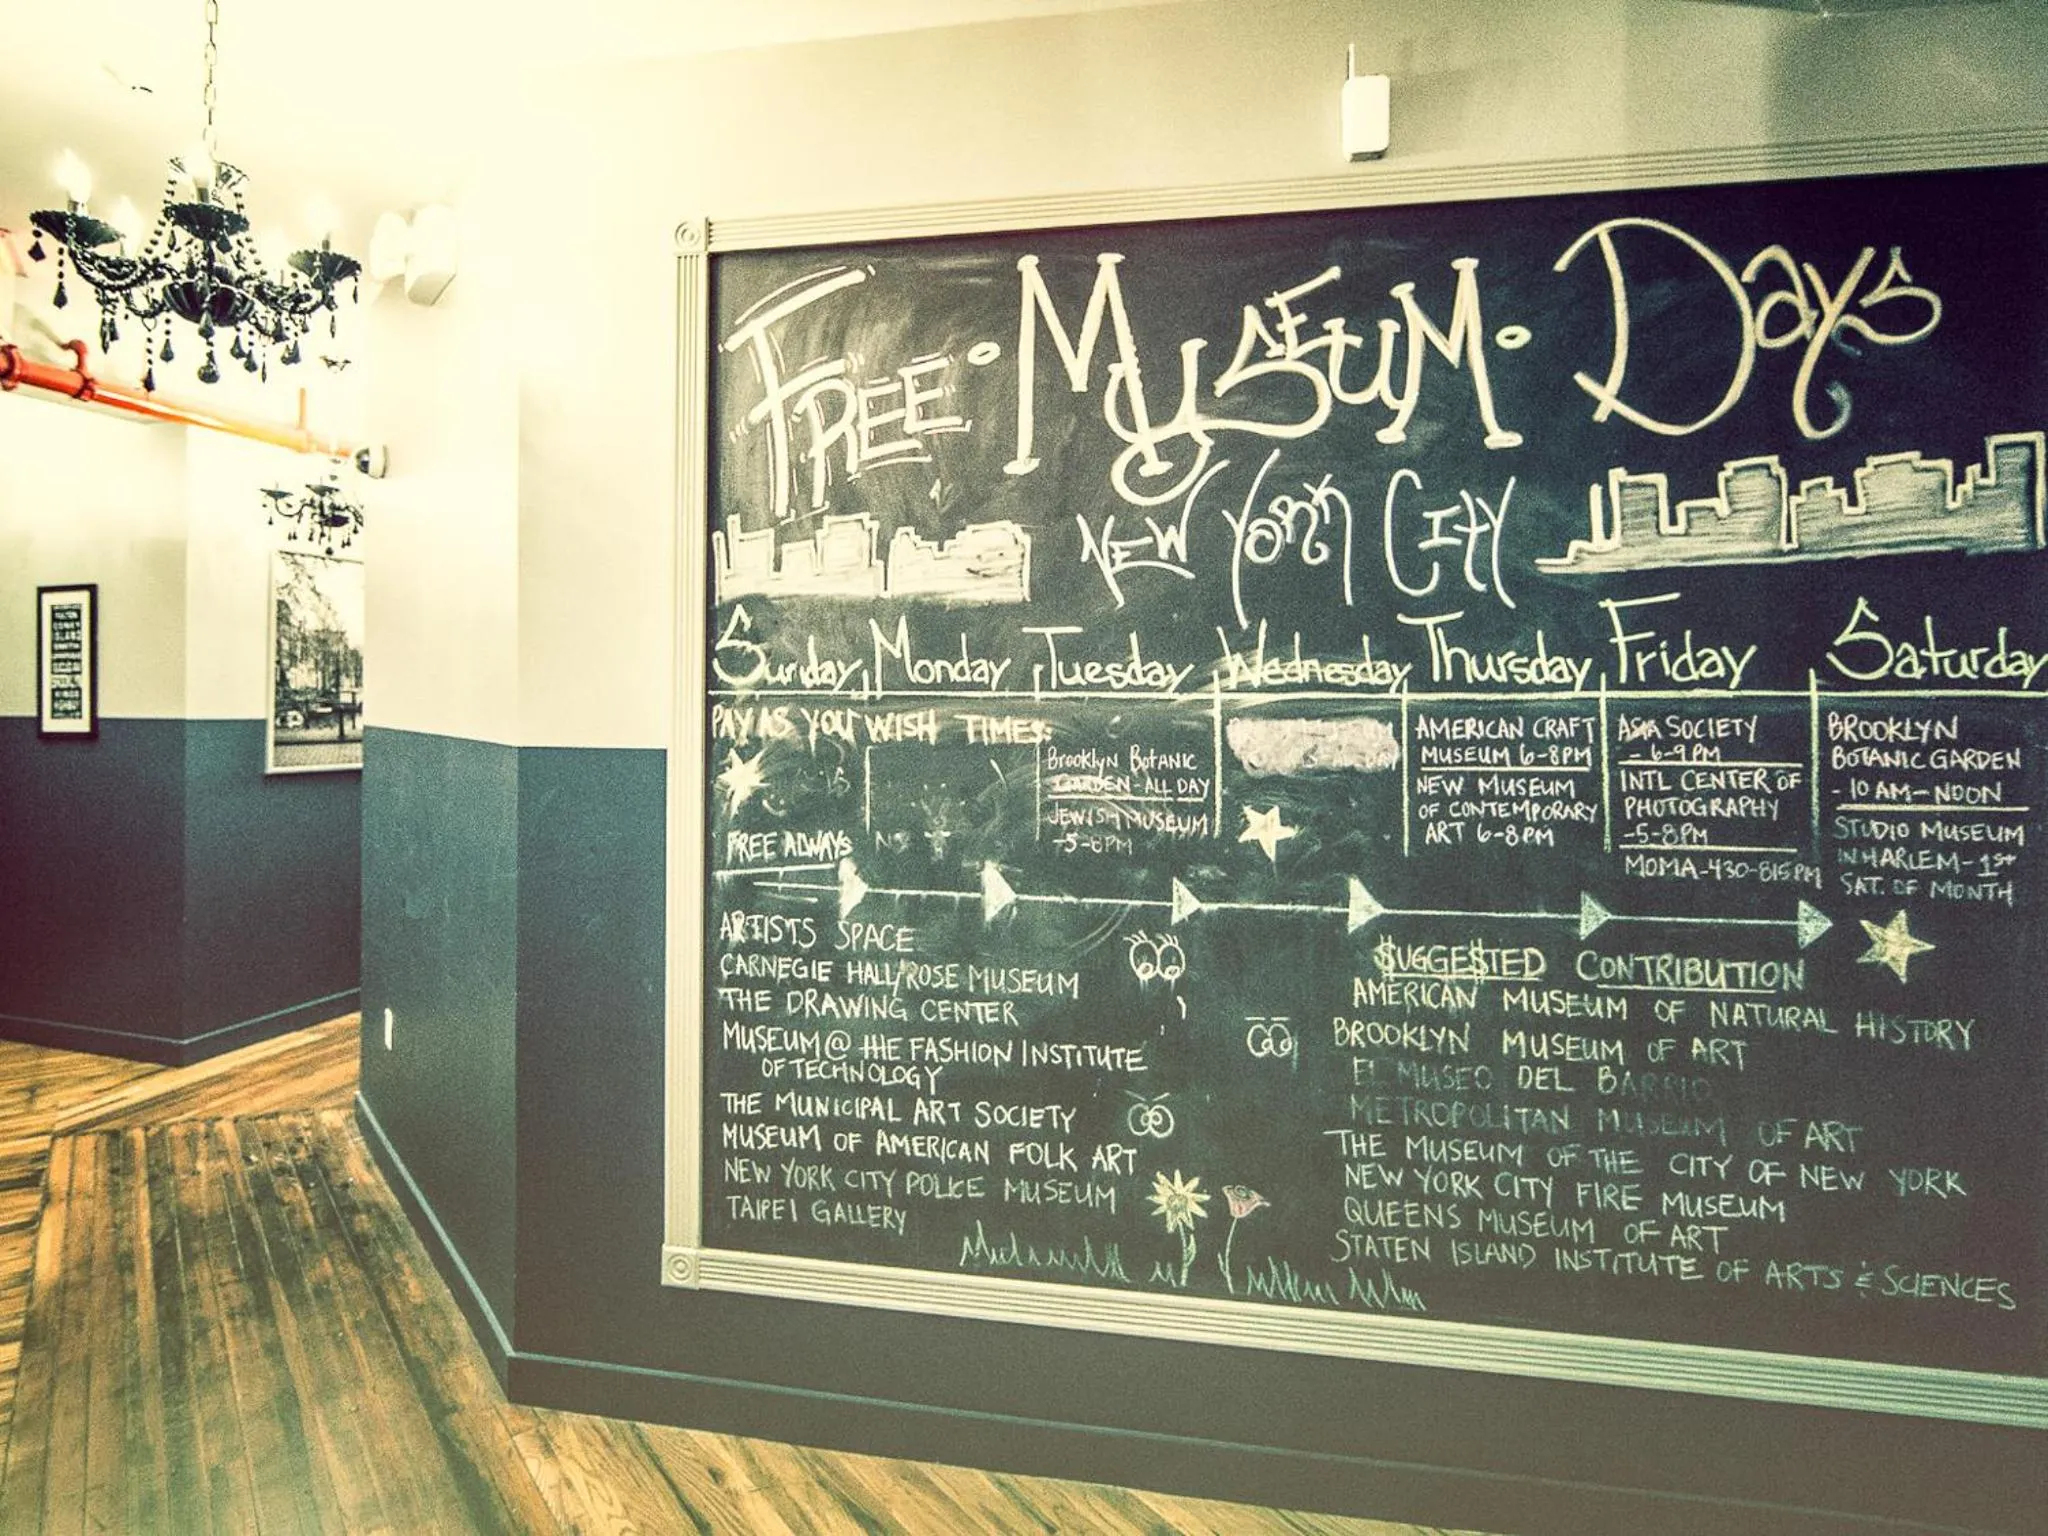 FREE • MUSEUM • DAYS
NEW YORK CITY
Sunday Monday Tuesday Wednesday Thursday Friday Saturday
PAY AS YOU WISH TIMES:
Brooklyn Botanic
GARDEN - ALL DAY
JEWISH MUSEUM
-5-8PM
AMERICAN CRAFT
MUSEUM 6-8PM
NEW MUSEUM
OF CONTEMPORARY
ART 6-8PM
ASIA SOCIETY
- 6-9PM
INTL CENTER OF
PHOTOGRAPHY
-5-8PM
MOMA-430-815PM
BROOKLYN
BOTANIC GARDEN
- 10 AM - NOON
STUDIO MUSEUM
IN HARLEM - 1ST
SAT. OF MONTH
FREE ALWAYS
ARTISTS SPACE
CARNEGIE HALL/ROSE MUSEUM
THE DRAWING CENTER
MUSEUM @ THE FASHION INSTITUTE
OF TECHNOLOGY
THE MUNICIPAL ART SOCIETY
MUSEUM OF AMERICAN FOLK ART
NEW YORK CITY POLICE MUSEUM
TAIPEI GALLERY
$UGGE$TED CONTRIBUTION
AMERICAN MUSEUM OF NATURAL HISTORY
BROOKLYN MUSEUM OF ART
EL MUSEO DEL BARRIO
METROPOLITAN MUSEUM OF ART
THE MUSEUM OF THE CITY OF NEW YORK
NEW YORK CITY FIRE MUSEUM
QUEENS MUSEUM OF ART
STATEN ISLAND INSTITUTE OF ARTS & SCIENCES